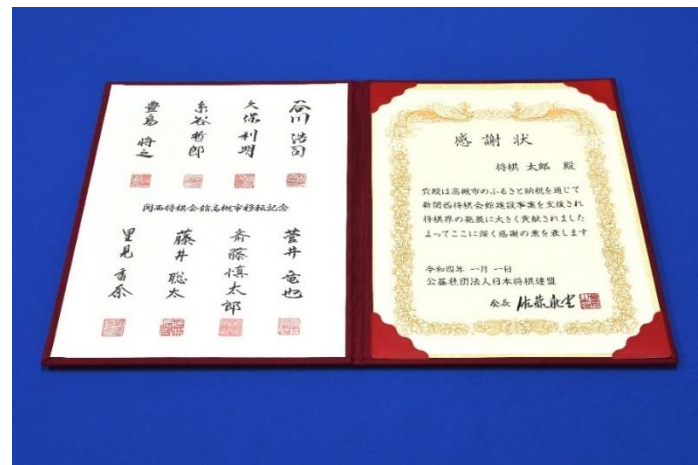 谷川 浩司
久保 利明
糸谷 哲郎
豊島 将之
関西将棋会館高槻市移転記念
菅井 竜也
斎藤 慎太郎
藤井 聡太
里見 香奈
感謝状
将棋 太郎 殿
貴殿は高槻市のふるさと納税を通じて
新関西将棋会館建設事業を支援され
将棋界の発展に大きく貢献されました
よってここに深く感謝の意を表します
令和四年 一月 一日
公益社団法人日本将棋連盟
会長 佐藤康光